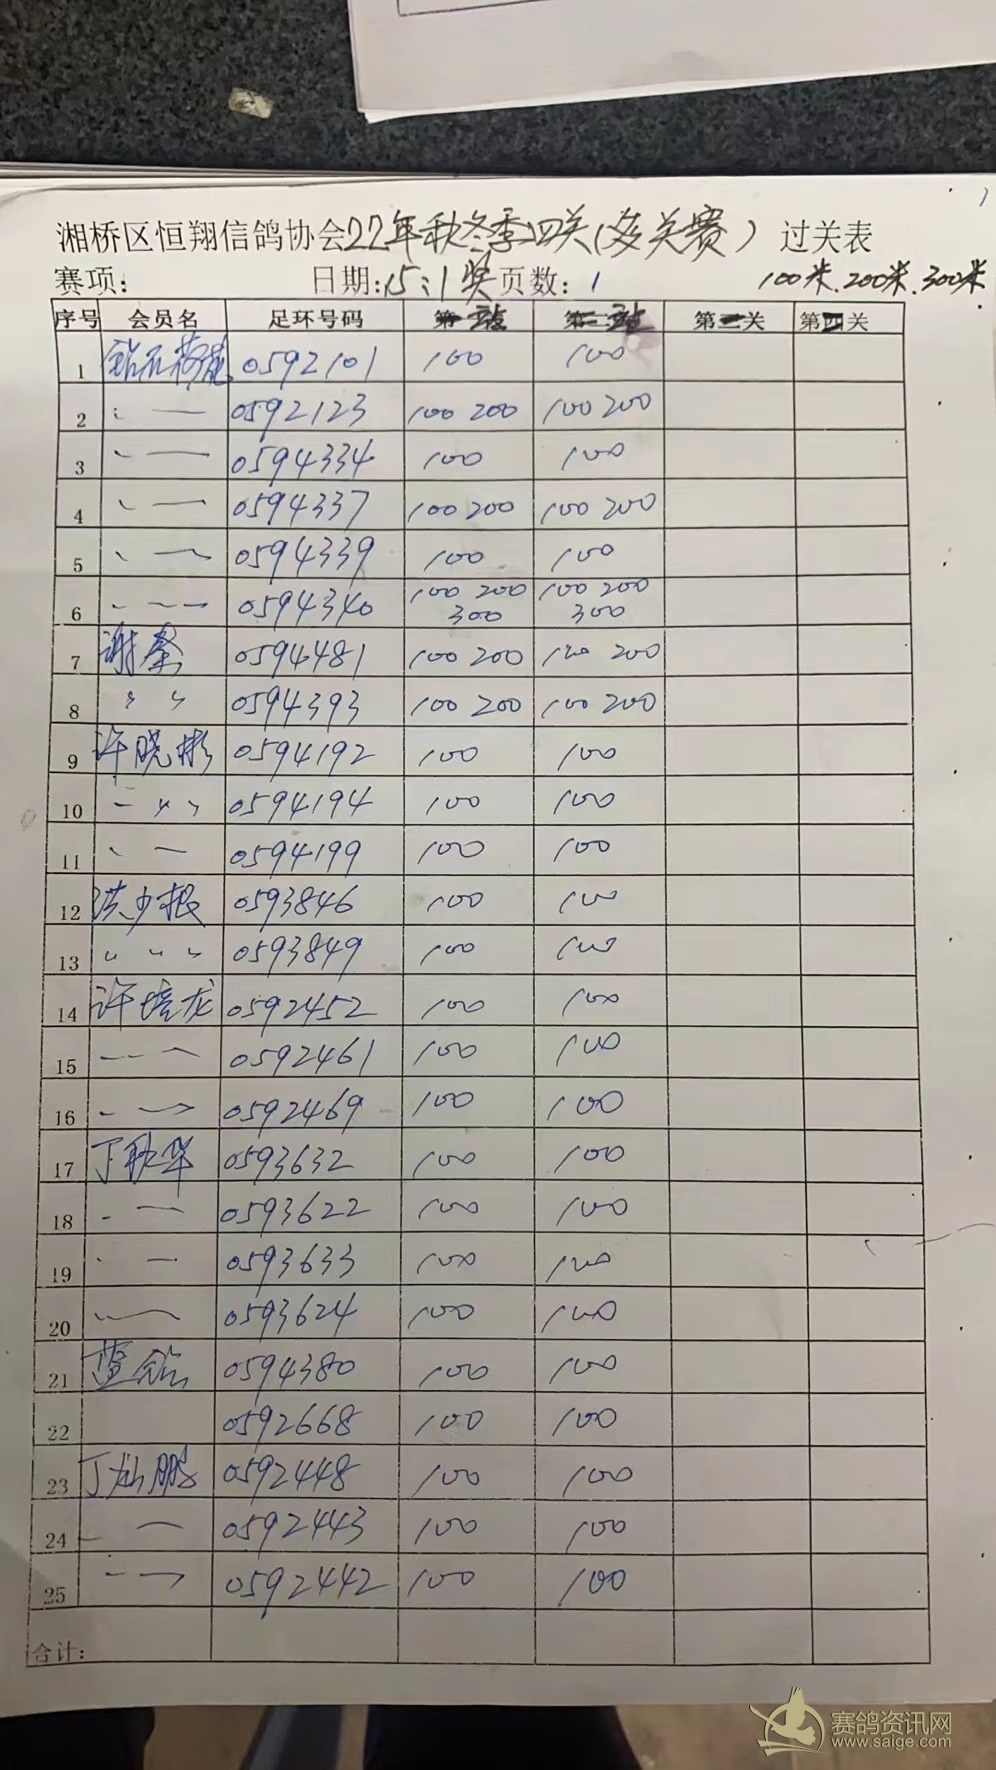 湘桥区恒翔信鸽协会22年秋冬季四关(多关赛) 过关表
赛项: 日期:15:1奖 页数: 1 100米.200米.300米
序号 会员名 足环号码 第一站 第二站 第三关 第四关
1 钻石荷苑 0592101 100 100
2 〃 — 0592123 100 200 100 200
3 〃 — 0594334 100 100
4 〃 — 0594337 100 200 100 200
5 〃 — 0594339 100 100
6 〃 — 0594340 100 200 300 100 200 300
7 谢 0594481 100 200 100 200
8 〃 〃 0594393 100 200 100 200
9 许晓彬 0594192 100 100
10 〃 〃 〃 0594194 100 100
11 〃 — 0594199 100 100
12 洪少根 0593846 100 100
13 〃 〃 〃 0593849 100 100
14 许培龙 0592452 100 100
15 — — 0592461 100 100
16 — — 0592469 100 100
17 丁耿华 0593632 100 100
18 — — 0593622 100 100
19 — — 0593633 100 100
20 — — 0593624 100 100
21 蓝钻 0594380 100 100
22 0592668 100 100
23 丁灿鹏 0592448 100 100
24 — — 0592443 100 100
25 — — 0592442 100 100
合计:
赛鸽资讯网
www.saige.com